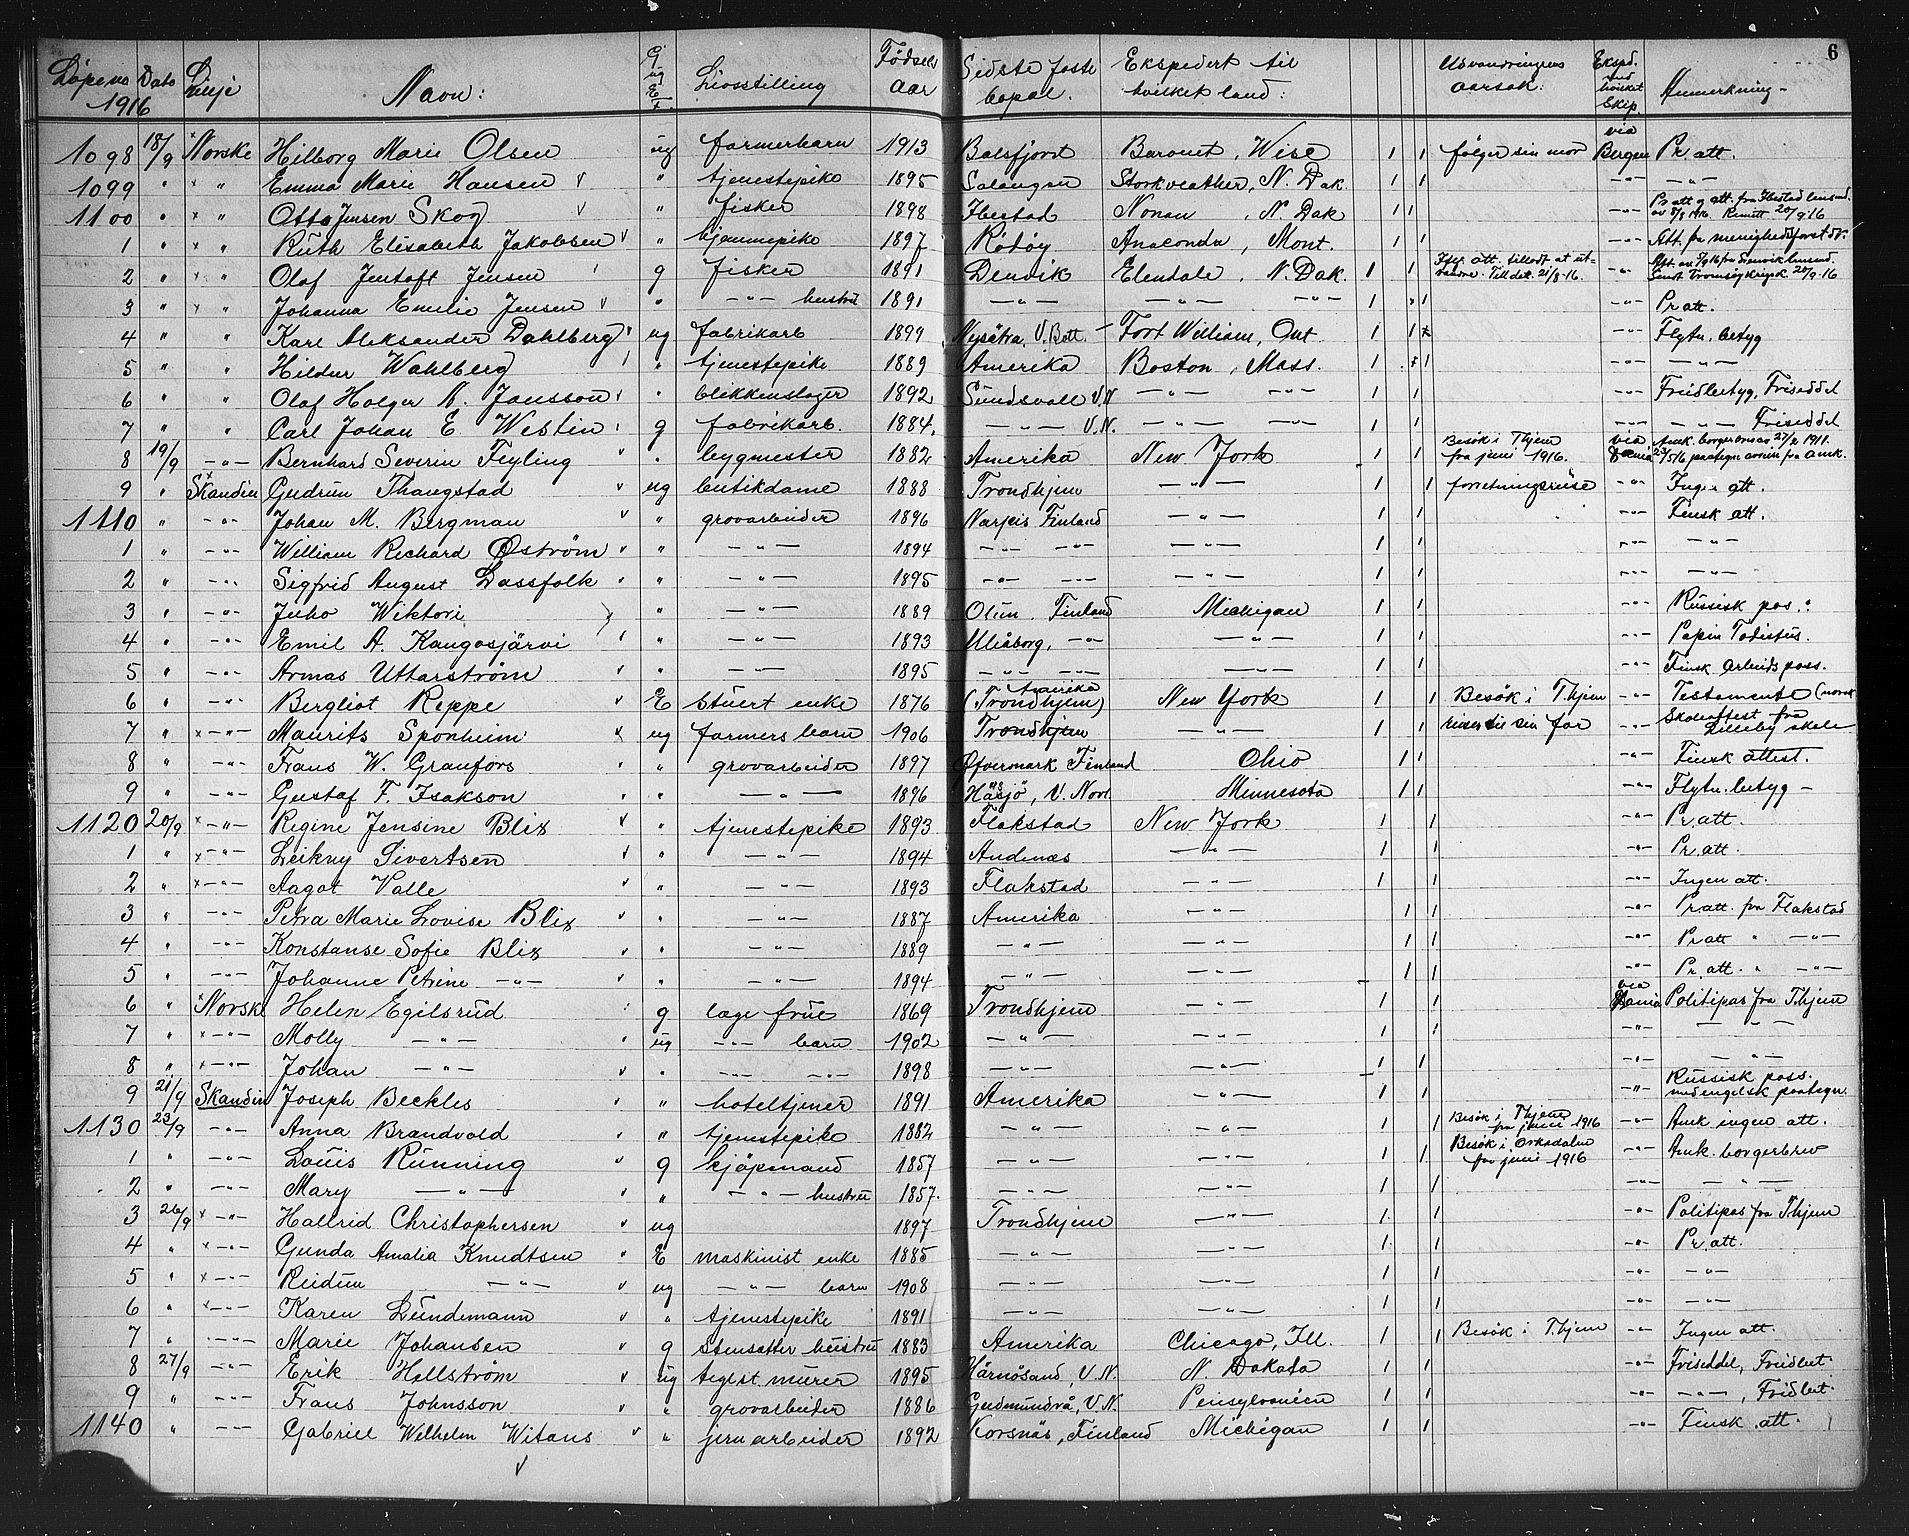 6
Löpeno Dato Linje Navn: G ug E Livsstilling Fødsels aar Sidste faste bopæl. Ekspedert til hvilket land: Utvandringens aarsak: Ekspd. Skip. Anmerkning
1916
1098 18/9 Norske Hilborg Marie Olsen ug farmerbarn 1913 Balsfjord Baronet, Wisc 1 1 følger sin mor via Bergen Pr. att.
1099 " " Emma Marie Hansen " tjenestepike 1895 Salangen Starkweather, N. Dak. 1 1 -"- -"-
1100 " " Otto Jensen Skog " fisker 1898 Ibestad Nonan, N. Dak 1 1 -"- Pr att og att. fra Ibestad lensmd. 20/9 16
1 " " Ruth Elisabeth Jakobsen " hjemmepike 1897 Rödöy Anaconda, Mont. 1 1 -"- Att. fra menighedsforstdr.
2 " " Olaf Jentoft Jensen g fisker 1891 Elendale, N. Dak. 1 1 att. tilladt at ut- vandre. 21/8-16. -"- 20/9-16
3 " " Johanna Emelie Jensen " -"- hustru 1891 -"- -"- -"- 1 1 -"- Pr att.
4 " " Karl Aleksander Dahlberg ug fabrikarb 1899 Nysätra, V. Bott. Fort William, Ont 1 1 -"- Flytn. betyg
5 " " Hildur Wahlberg " tjenestepike 1889 Amerika Boston, Mass. 1 1 -"- -"-
6 " " Olaf Holger A. Jansson " blikkenslager 1892 Sundsvall V.N -"- -"- 1 1 -"- Fridbetyg, Friseddel
7 " " Carl Johan E Westin g fabrikarb. 1884. -"- V.N. -"- -"- 1 1 -"- -"- Friseddel
8 19/9 -"- Bernhard Severin Feyling " bygmester 1882 Amerika New York 1 1 Besök i Thjem fra juni 1916. via Amk. borgerbrev av 27/2 1911.
9 " Skandin Gudrun Thangstad ug butikdame 1888 Trondhjem -"- 1 1 forretningsreise -"- Ingen att.
1110 " -"- Johan M. Bergman " grovarbeider 1896 Narpes Finland -"- 1 1 -"- Finsk att.
1 " -"- William Richard Öström " -"- 1894 -"- -"- -"- 1 1 -"- -"-
2 " -"- Sigfrid August Lassfolk " -"- 1895 -"- -"- -"- 1 1 -"- -"-
3 " -"- Juho Wiktori " -"- 1889 Finland Michigan 1 1 -"- Russisk pas.
4 " -"- Emil A. Kangosjärvi " -"- 1893 Uleåborg, -"- -"- 1 1 -"- Papin Todistus.
5 " -"- Armas Uttarström " -"- 1895 -"- -"- -"- 1 1 -"- Finsk Arbeids pass.
6 " -"- Bergliot Reppe E stuert enke 1876 Amerika (Trondhjem) New York 1 1 Besøk i T.hjem -"- Testamente (norsk
7 " -"- Maurits Sponheim ug farmers barn 1906 Trondhjem -"- 1 1 reiser til sin far -"- Skoleattest fra Lilleby skole
8 " -"- Frans W. Granfors " grovarbeider 1897 Øfvermark Finland Ohio 1 1 -"- Finsk attest.
9 " -"- Gustaf F. Isakson " -"- 1896 Häsjö, V. Norl. Minnesota 1 1 -"- Flytn. betyg -
1120 20/9 -"- Regine Jensine Blix " tjenestepike 1893 Flakstad New York 1 1 -"- Pr. att.
1 " -"- Leikny Sivertsen " -"- 1894 Andenæs -"- 1 1 -"- Pr. att.
2 " -"- Aagot Valle " -"- 1893 Flakstad -"- 1 1 -"- Ingen att.
3 " -"- Petra Marie Lovise Blix " -"- 1887 Amerika -"- 1 1 -"- Pr. att. fra Flakstad
4 " -"- Konstanse Sofie Blix " -"- 1889 -"- -"- 1 1 -"- Pr att " -"-
5 " -"- Johanne Petrine -"- " -"- 1894 -"- -"- 1 1 -"- Pr. att. " -"-
6 " Norske Helen Egilsrud g læge frue 1869 Trondhjem -"- 1 1 via Politipas fra T.hjem
7 " -"- Molly -"- ug -"- barn 1902 -"- -"- 1 1 -"- -"-
8 " -"- Johan -"- " -"- -"- 1898 -"- -"- 1 1 -"- -"-
9 21/9 Skandin Joseph Beckles " hoteltjener 1891 Amerika -"- 1 1 -"- Russisk pass. med engelsk paategn.
1130 23/9 -"- Anna Brandvold " tjenestepike 1882 -"- -"- 1 1 Besök i Thjem fra juni 1916 -"- Amk ingen att.
1 " -"- Louis Running g kjöpmand 1857 -"- -"- 1 1 Besök i Orkedalen fra juni 1916 -"- Amk. borgerbrev
2 " -"- Mary -"- " -"- hustru 1857. -"- -"- 1 1 -"- -"-
3 26/9 -"- Hallrid Christophersen ug 1897 Trondhjem -"- 1 1 -"- Politipas fra T.hjem
4 " -"- Gunda Amalia Knudtsen E maskinist enke 1885 -"- -"- 1 1 -"- Pr. att.
5 " -"- Reidun -"- ug -"- barn 1908 -"- -"- 1 1 -"- -"-
6 " -"- Karen Lundemann " tjenestepike 1891 -"- -"- 1 1 -"- -"-
7 " -"- Marie Johansen g stensetter hustru 1883 Amerika Chicago, Ill. 1 1 Besøk i T.hjem -"- Ingen att.
8 27/9 -"- Erik Hellström ug teglst. murer 1895 Härnösand, V.N. N. Dakota 1 1 -"- Friseddel, Fridbet.
9 " -"- Frans Johnsson " grovarbeider 1886 Gudmundrå, V.N. Pensylvanien 1 1 -"- -"-, Fridbet.
1140 " -"- Gabriel Welhelm Witans " jernarbeider 1892 Korsnäs, Finland Michigan 1 1 -"- Finsk att.